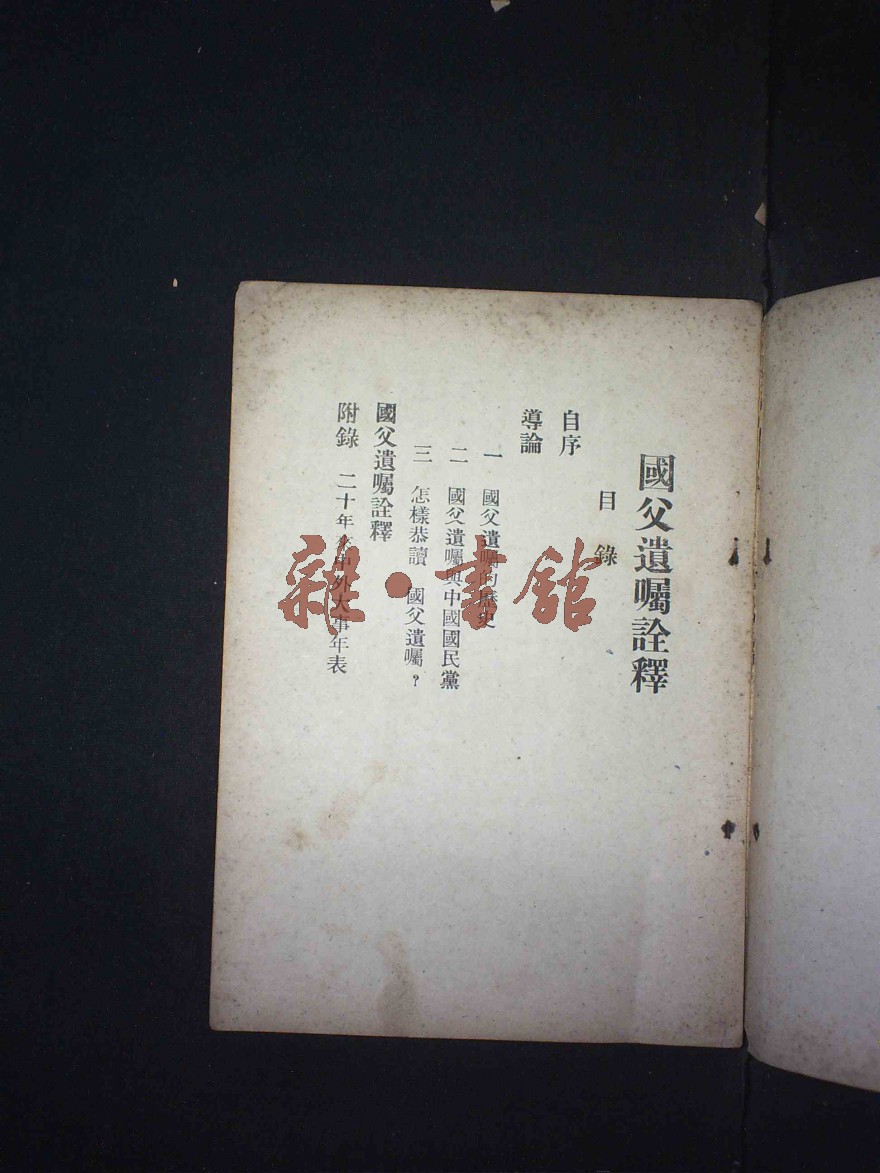 國父遺囑詮釋
目錄
自序
導論
一 國父遺囑的歷史
二 國父遺囑與中國國民黨
三 怎樣恭讀 國父遺囑?
國父遺囑詮釋
附錄 二十年來中外大事年表
雜·書館